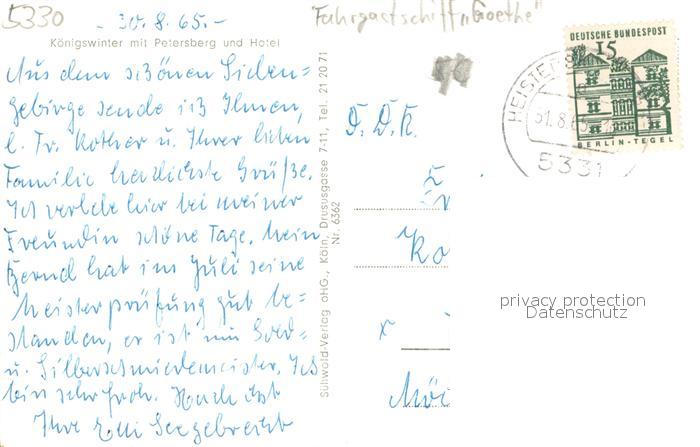 5330
- 30.8.65.-
Fahrgastschiff "Goethe"
Königswinter mit Petersberg und Hotel
Aus dem schönen Sieben=
gebirge sende ich Ihnen,
l. Fr. Kother u. Ihrer lieben
Familie herzlichste Grüße.
Ich verlebe hier bei meiner
Freundin schöne Tage. Mein
Bernd hat im Juli seine
Meisterprüfung gut be-
standen, er ist nun Gold-
u. Silberschmiedemeister. Ich
bin sehr froh. Nach
Ihre Elli Seegebrecht
Sühwold-Verlag oHG., Köln, Drususgasse 7-11, Tel. 21 20 71
Nr. 6362
DEUTSCHE BUNDESPOST
15
BERLIN-TEGEL
31.8.65
5331
Fr
Ko
x
privacy protection
Datenschutz